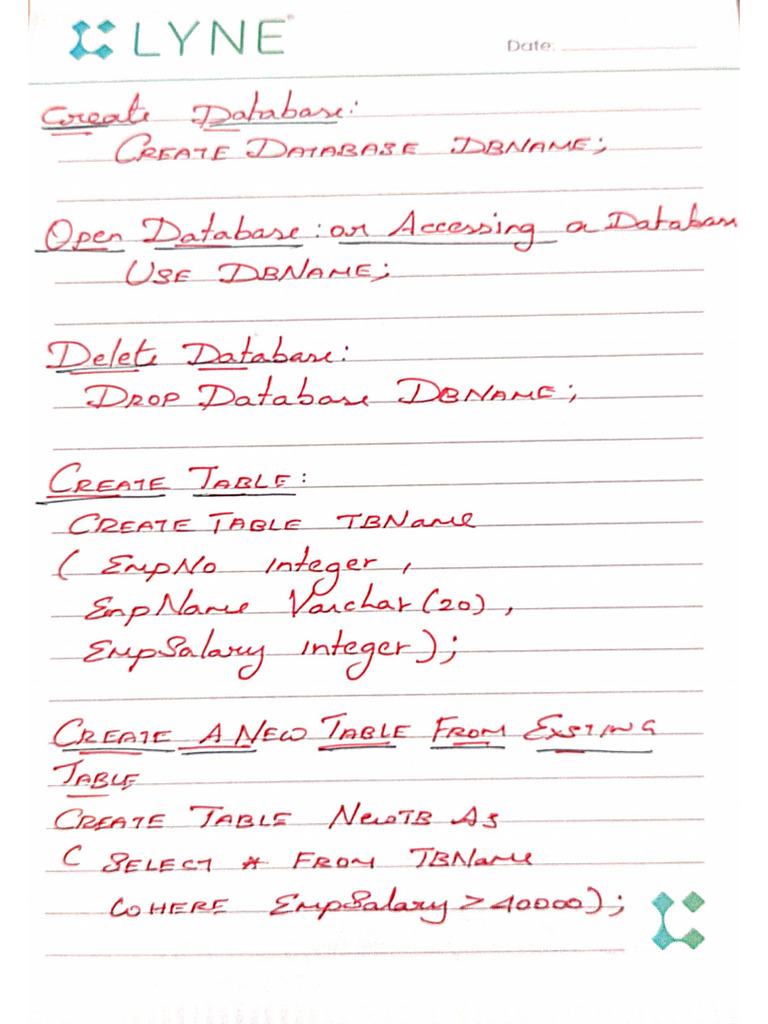 LYNE
Date:
Create Database:
CREATE DATABASE DBNAME;
Open Database: or Accessing a Database
USE DBNAME;
Delete Database:
DROP Database DBNAME;
CREATE TABLE:
CREATE TABLE TBName
( EmpNo integer,
EmpName Varchar(20),
EmpSalary integer);
CREATE A NEW TABLE FROM EXSTING
TABLE
CREATE TABLE NewTB AS
( SELECT * FROM TBName
WHERE EmpSalary > 40000);